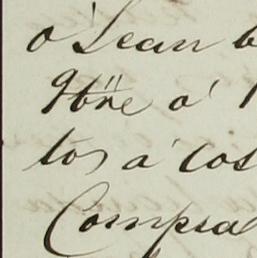 o' Lean b
9bre o'
tos a' cos
Compra